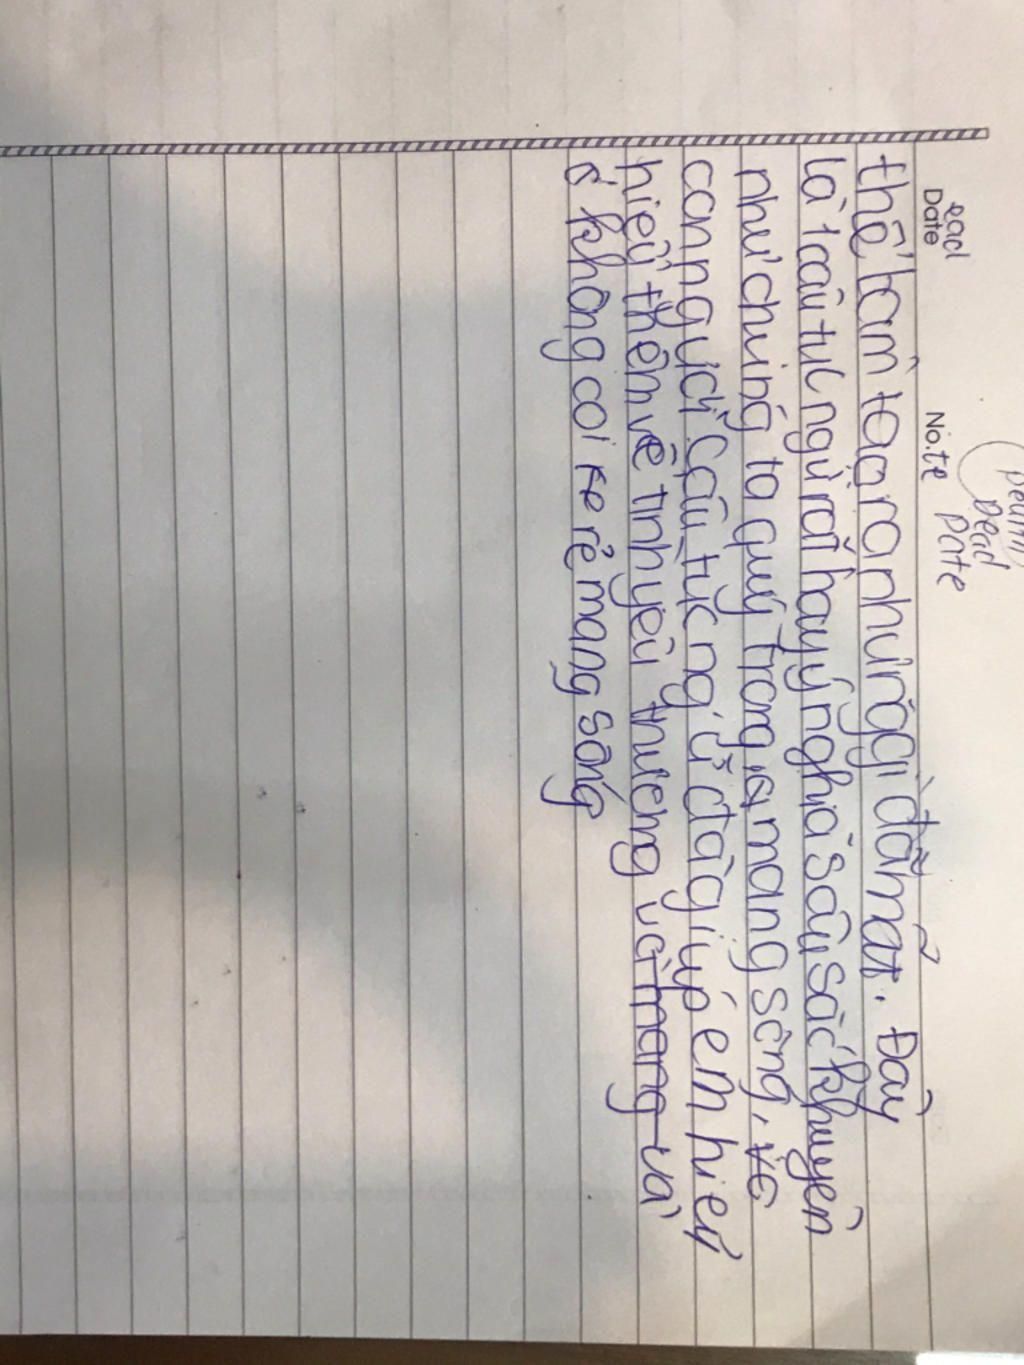 Dead
Dead Date
Date No.te
thể làm tạo ra những gì đã mất. Đây
là 1 câu tục ngữ rất hay ý nghĩa sâu sắc khuyên
như chúng ta quý trọng mạng sống, về
con người. Câu tục ngữ đã giúp em hiểu
hiểu thêm về tình yêu thương và mạng và
ko không coi rẻ rẻ mạng sống